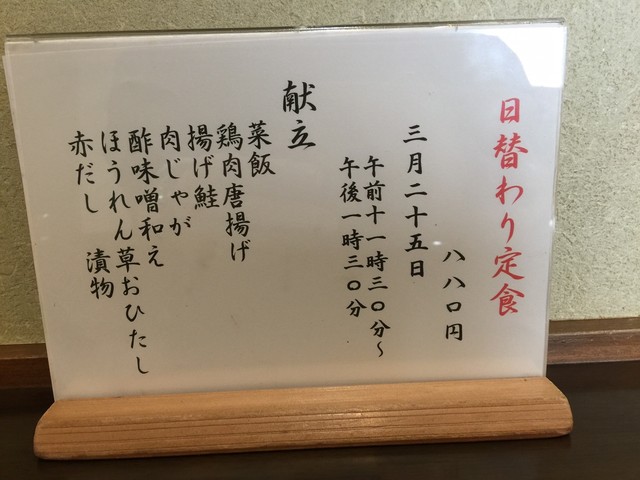 日替わり定食
八八〇円
三月二十五日
午前十一時三〇分〜
午後一時三〇分
献立
菜飯
鶏肉唐揚げ
揚げ鮭
肉じゃが
酢味噌和え
ほうれん草おひたし
赤だし 漬物